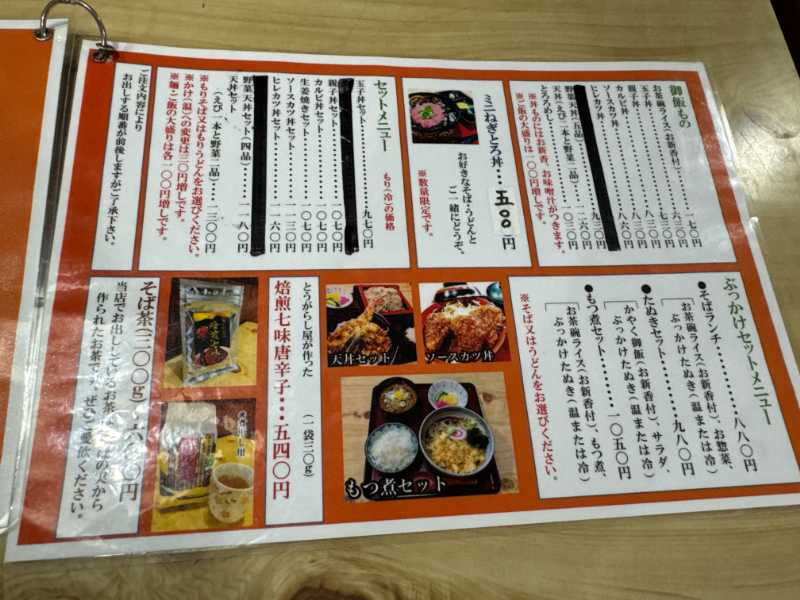 御飯もの
お茶碗ライス(お新香付)
玉子丼
親子丼
カルビ丼
ソースカツ丼
ヒレカツ丼
野菜天丼(五品)
天丼(えび一本と野菜二品)
とろろめし
※丼ものにはお新香、お味噌汁がつきます。
※ご飯の大盛りは一〇〇円増しです。
ミニねぎとろ丼・・・五〇〇円
お好きなそば・うどんと
ご一緒にどうぞ。
※数量限定です。
セットメニュー
もり(冷)の価格
玉子丼セット……九七〇円
親子丼セット
カルビ丼セット
生姜焼きセット
ソースカツ丼セット……一一三〇円
ヒレカツ丼セット……一一六〇円
野菜天丼セット(四品)……一一八〇円
天丼セット……一三〇〇円
(えび一本と野菜二品)
※もりそば又はもりうどんをお選びください。
※かけ(温)への変更は三〇円増しです。
※麺・ご飯の大盛りは各一〇〇円増しです。
ご注文内容により
お出しする順番が前後しますがご了承下さい。
ぶっかけセットメニュー
●そばランチ……八八〇円
お茶碗ライス(お新香付)、お惣菜、
ぶっかけたぬき(温または冷)
●たぬきセット……九八〇円
かやく御飯(お新香付)、サラダ、
ぶっかけたぬき(温または冷)
●もつ煮セット……一〇五〇円
お茶碗ライス(お新香付)、もつ煮、
ぶっかけたぬき(温または冷)
※そば又はうどんをお選びください。
天丼セット
ソースカツ丼
もつ煮セット
とうがらし屋が作った
(一袋三〇g)
焙煎七味唐辛子・・・五四〇円
そば茶(三〇〇g)
当店でお出ししているお茶
作られたお茶です。ぜひご愛飲ください。